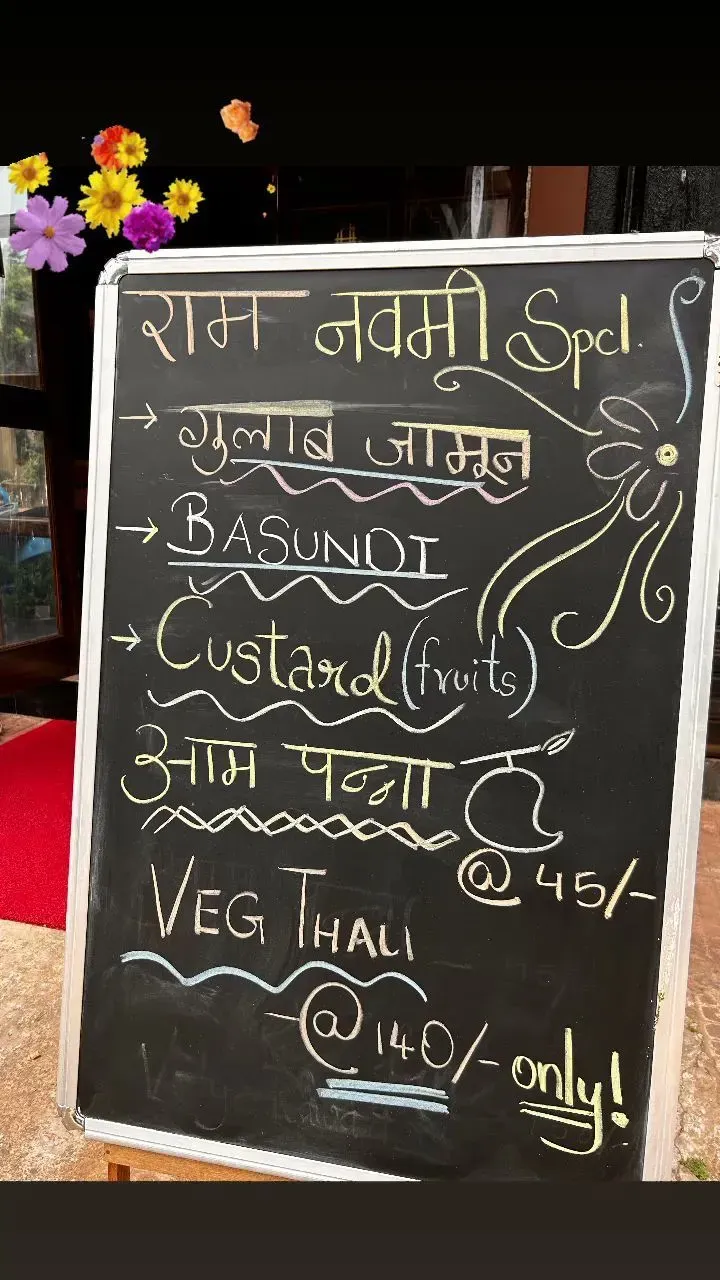 राम नवमी Spcl.
→ गुलाब जामून
→ BASUNDI
→ Custard (fruits)
आम पन्ना
@ 45/-
VEG THALI
- @ 140/- only!